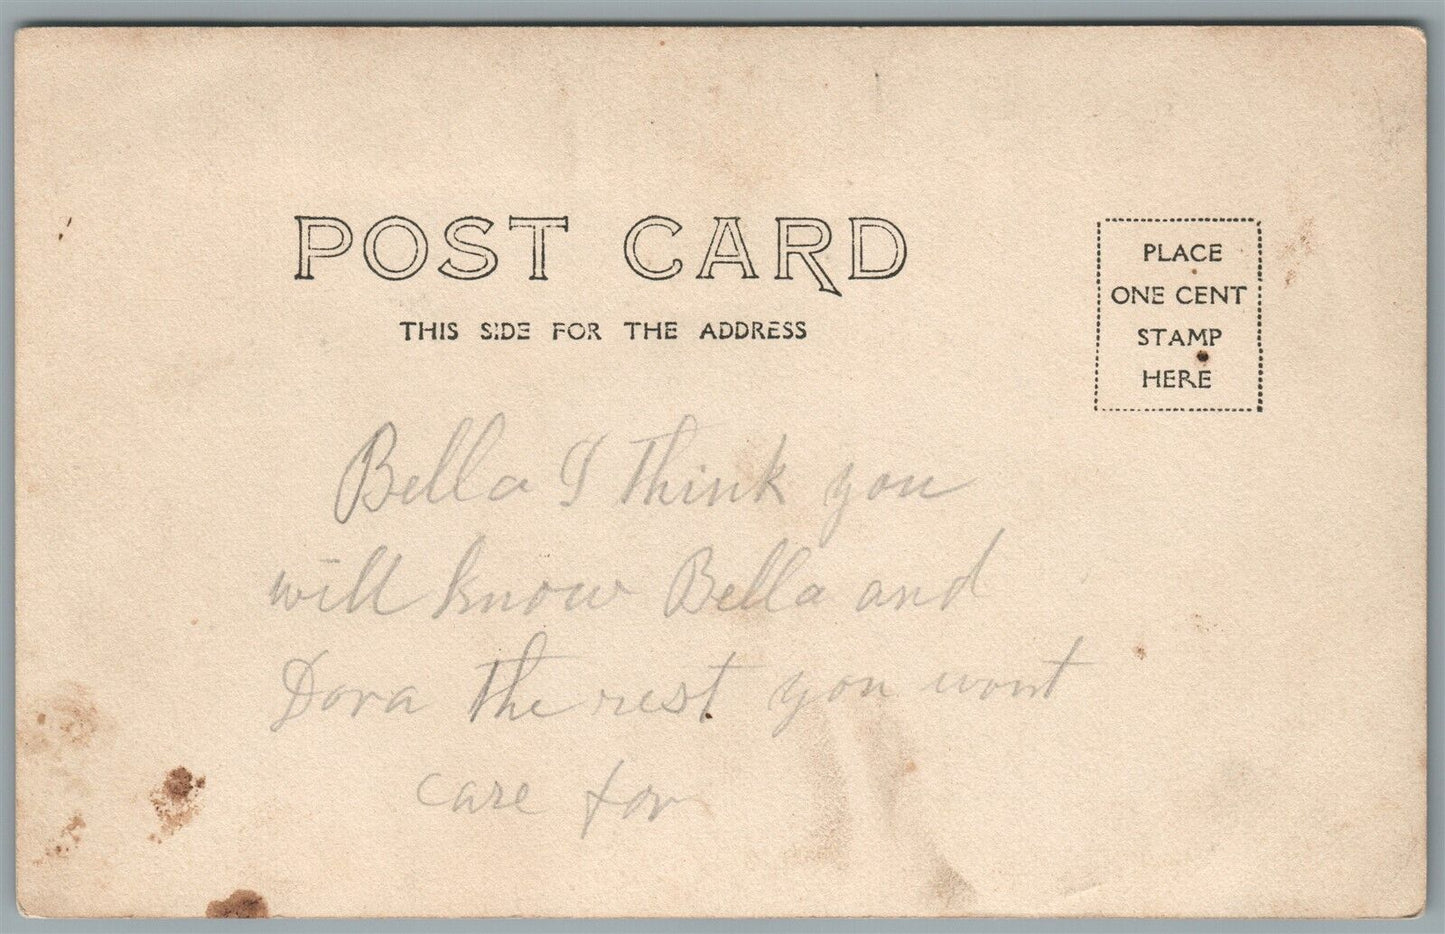 POST CARD
THIS SIDE FOR THE ADDRESS
PLACE
ONE CENT
STAMP
HERE
Bella I think you
will know Bella and
Dora the rest you wont
care for